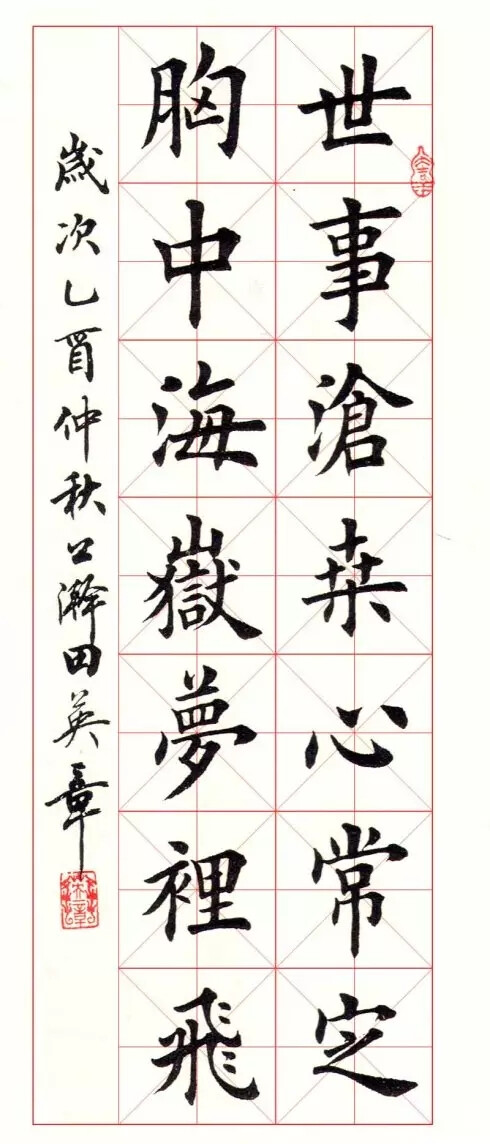 世事滄桒心常定
胸中海嶽夢裡飛
歲次乙酉仲秋
田英章